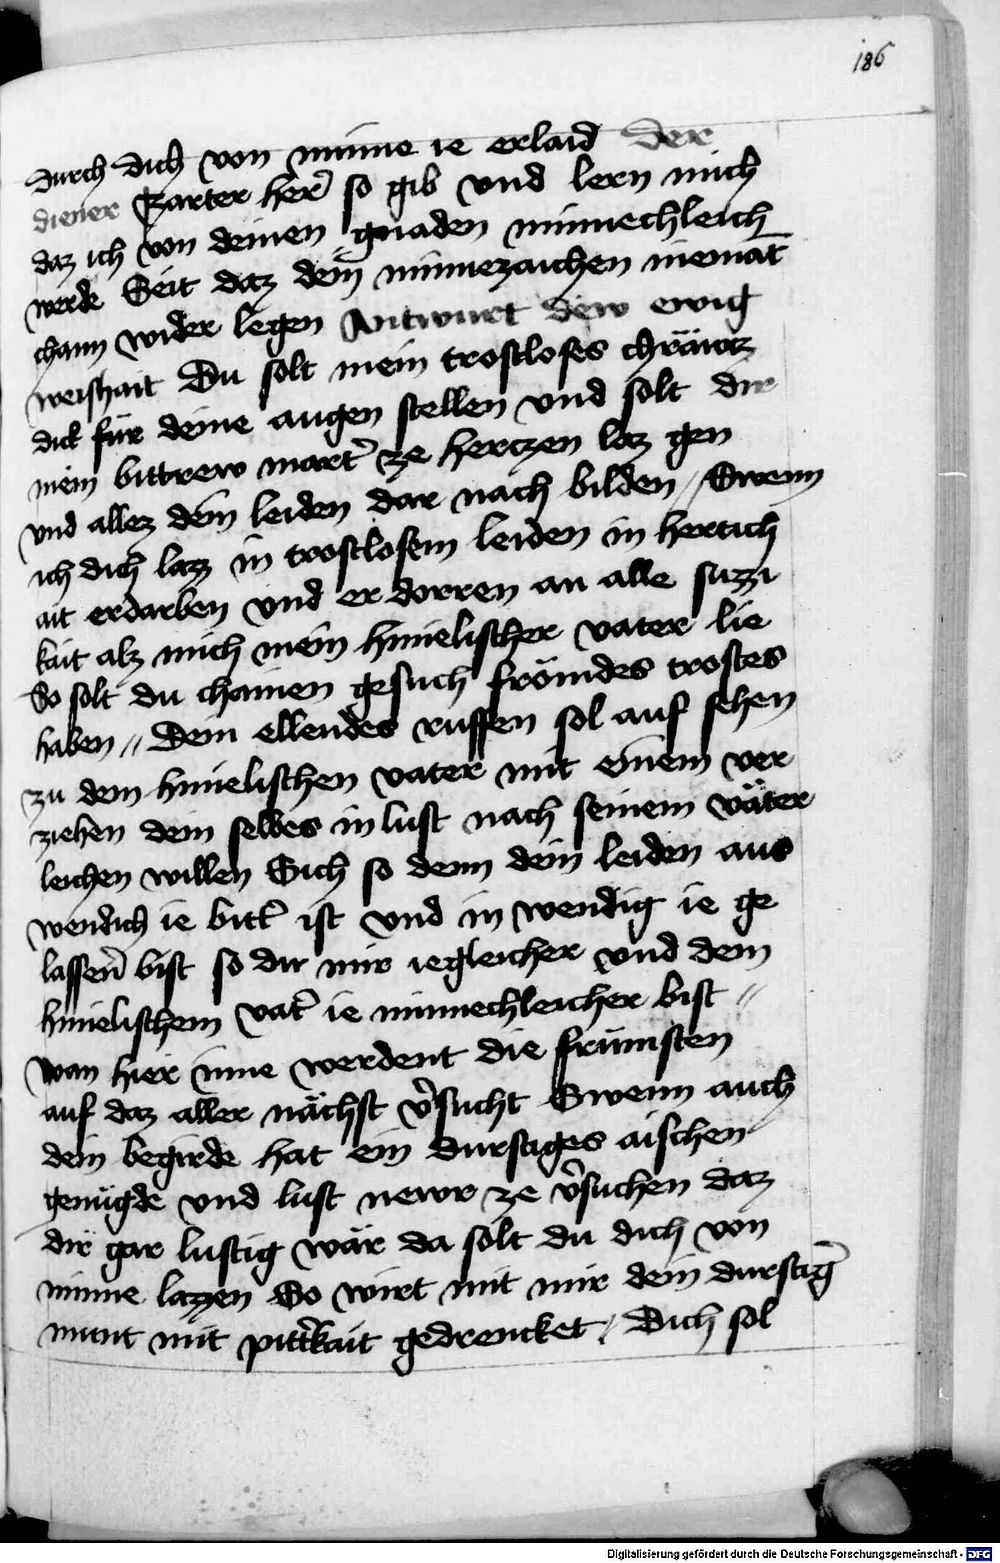 186
durch dich von minne ie erlaid Der
diener Zarter her̄ so gib vnd lern mich
daz ich von deinen gnaden minnechleich
werde Seit daz dein minnezaichen niemāt
chann wider legen Antwurt dew ewig
weishait Du solt mein trostloses chräwcz
dick für deine augen stellen vnd solt dir
mein bittrew mart̄ ze herczen laz gen
vnd allez dein leiden dar nach bilden // Swenn
ich dich lazz in trostlosem leiden in hertich
ait erdarben vnd er dorren an alle suzzi
kait alz mich mein himelischer vater lie
So solt du chainen gesuch frömdes trostes
haben // Dein ellendes ruffen sol auf sehen
zu dem himelischen vater mit einem ver
ziehen dein selbes in lust nach seinem väter
leichen willen Sich so denn dein leiden aus
wendich ie bitt̄ ist vnd in wendig ie ge
lassen̄ bist so du mir iegleicher vnd dem
himelischem vat̄ ie minnechleicher bist //
Wan hier inne werdent die frümsten
auf daz aller nächst v̄sucht Swenn auch
dein begirde hat ein durstiges aischen
genügde vnd lust newr ze v̄suchen daz
dir gar lustig wär da solt du dich von
minne lazzen So wirt mit mir dein durstiḡ
munt mit pitt̄kait gedrencket / Dich sol
Digitalisierung gefördert durch die Deutsche Forschungsgemeinschaft - DFG